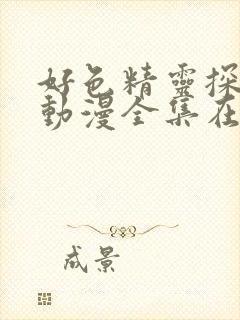 好色精靈探
動漫全集在
成景